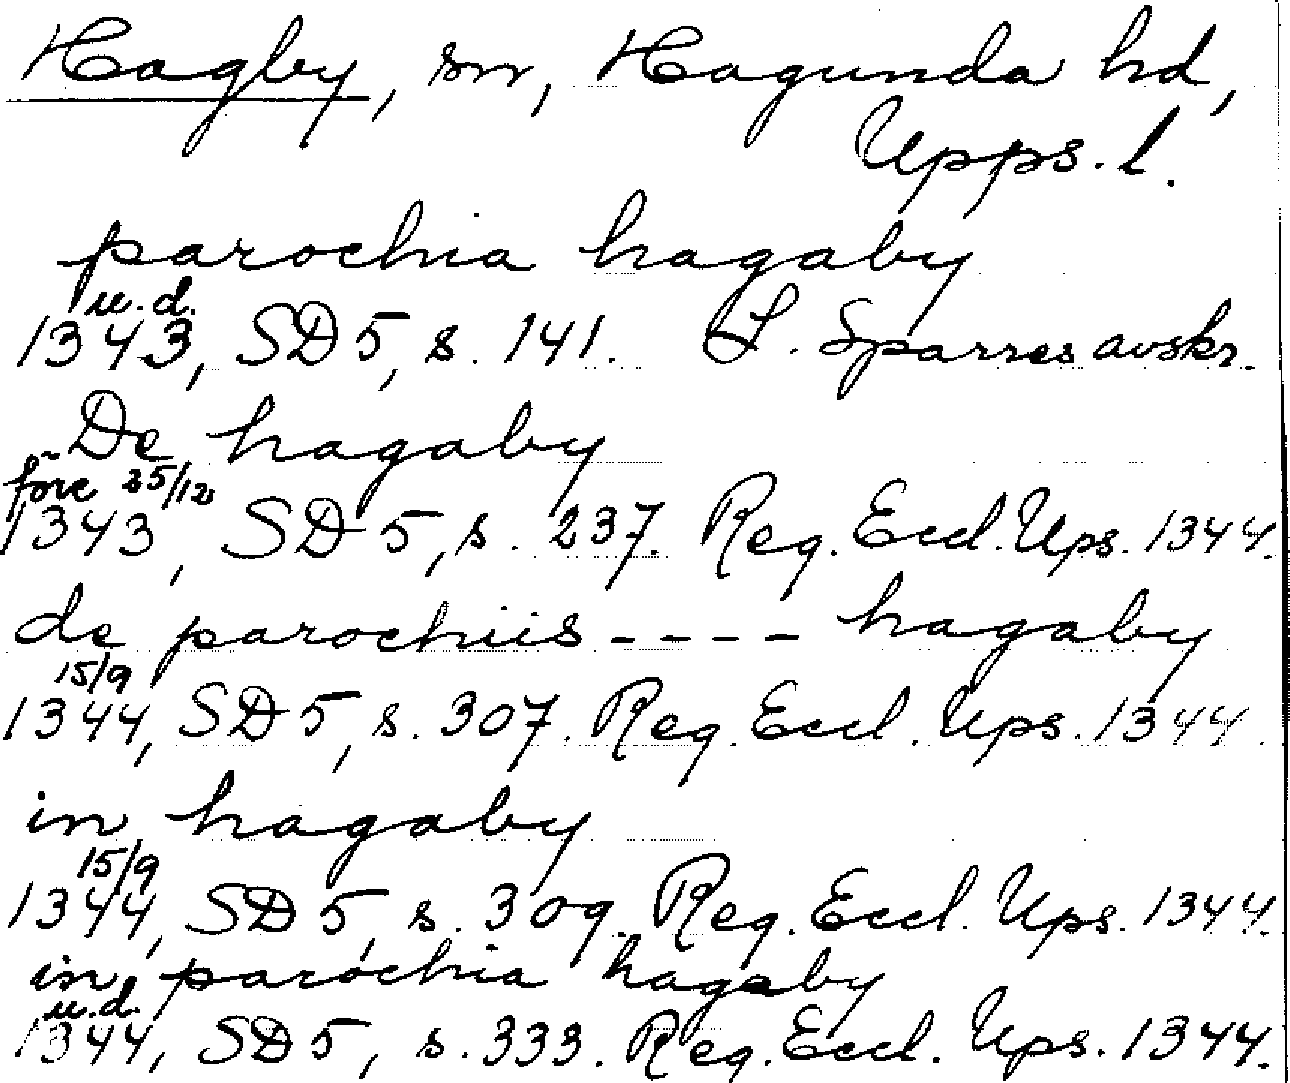 Hagby, sn, Hagunda hd,
Upps. l.
parochia hagaby
u. d.
1343, SD 5, s. 141. L. Sparres avskr.
De hagaby
före 25/12
1343, SD 5, s. 237. Reg. Eccl. Ups. 1344.
de parochiis ---- hagaby
15/9
1344, SD 5, s. 307. Reg. Eccl. Ups. 1344.
in hagaby
15/9
1344, SD 5, s. 309. Reg. Eccl. Ups. 1344.
in parochia hagaby
u. d.
1344, SD 5, s. 333. Reg. Eccl. Ups. 1344.